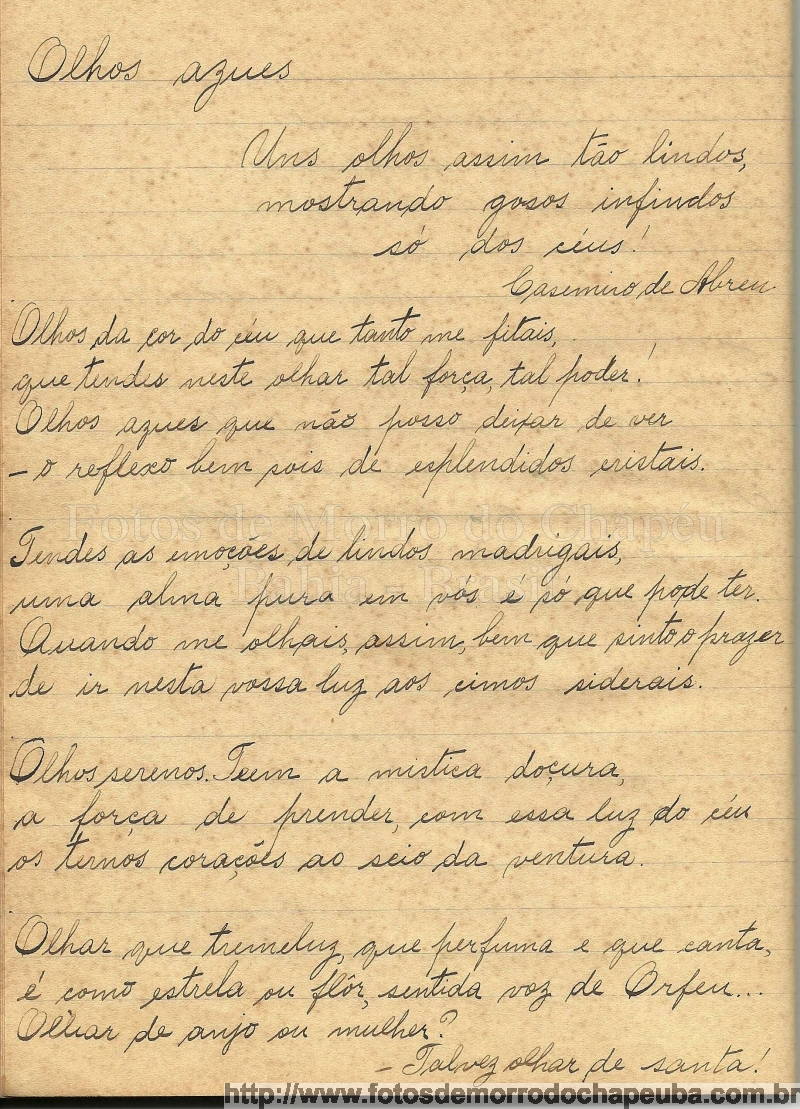 Olhos azues
Uns olhos assim tão lindos,
mostrando gosos infindos
só dos céus!
Casemiro de Abreu
Olhos da cor do céu que tanto me fitais,
que tendes neste olhar tal força, tal poder!
Olhos azues que não posso deixar de ver
– o reflexo bem sois de esplendidos cristais.
Fotos de Morro do Chapéu
Bahia - Brasil
Tendes as emoções de lindos madrigais,
uma alma pura em vós é só que pode ter.
Quando me olhais, assim, bem que sinto o prazer
de ir nesta vossa luz aos cimos siderais.
Olhos serenos. Teem a mistica doçura,
a força de prender, com essa luz do céu
os ternos corações ao seio da ventura.
Olhar que tremeluz, que perfuma e que canta,
é como estrela ou flôr, sentida voz de Orfeu...
Olhar de anjo ou mulher?
– Talvez olhar de santa!
http://www.fotosdemorrodochapeuba.com.br